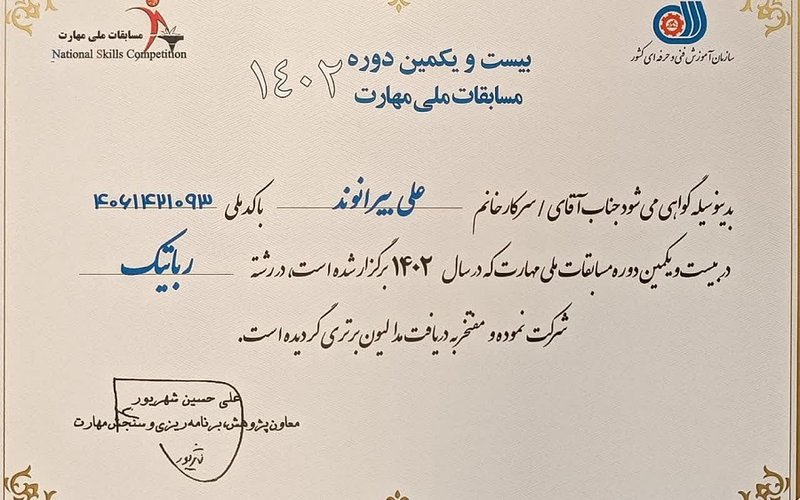 مسابقات ملی مهارت
National Skills Competition
سازمان آموزش فنی و حرفه ای کشور
بیست و یکمین دوره ۱۴۰۲
مسابقات ملی مهارت
بدینوسیله گواهی می شود جناب آقای / سرکار خانم علی بیرانوند با کد ملی ۴۰۶۱۴۲۱۰۹۳
در بیست و یکمین دوره مسابقات ملی مهارت که در سال ۱۴۰۲ برگزار شده است، در رشته رباتیک
شرکت نموده و مفتخر به دریافت مدالیون برتری گردیده است.
علی حسین شهریور
معاون پژوهش، برنامه ریزی و سنجش مهارت